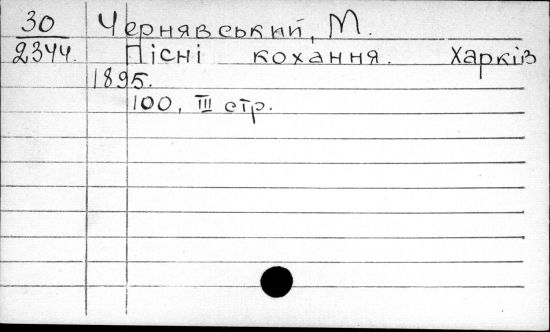 30 Чернявський, М.
2344. Пісні кохання. Харків
1895.
100, III стр.